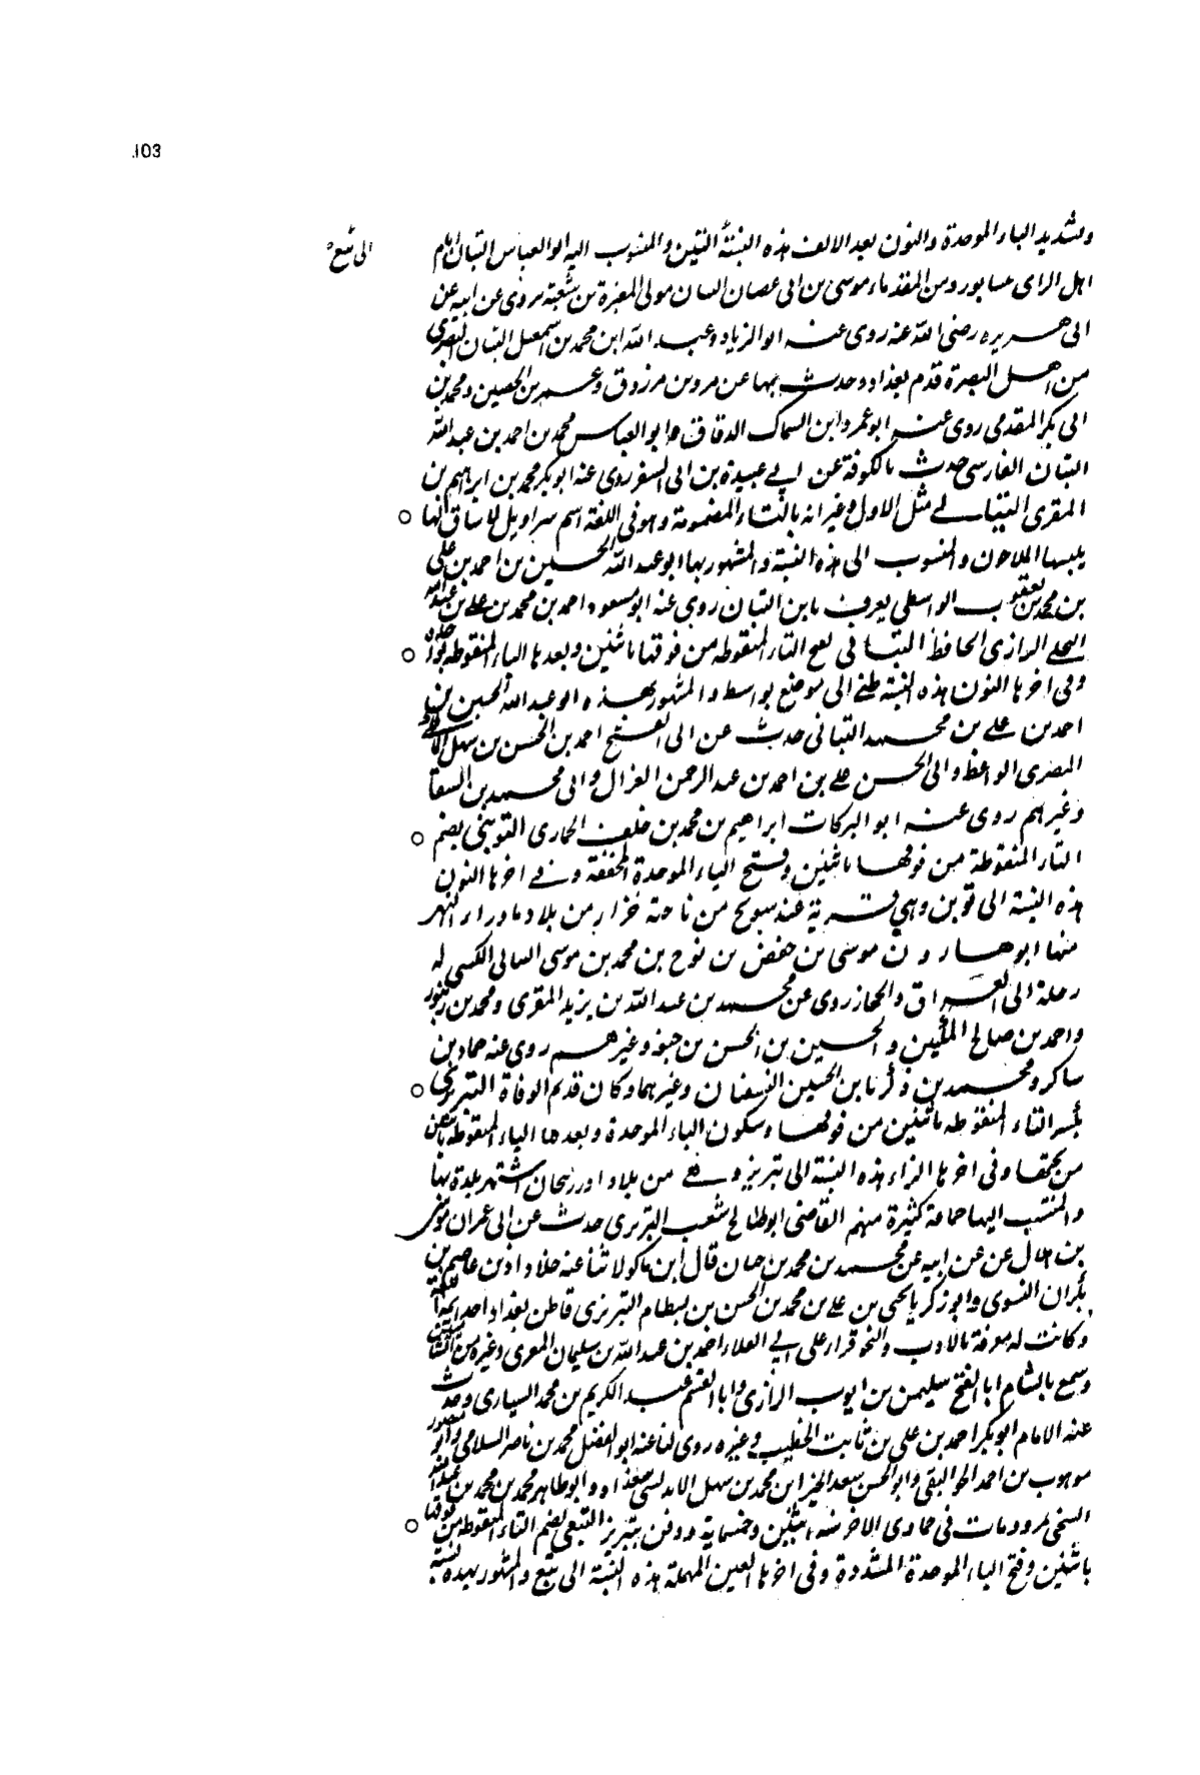 103
وتشديد الباء الموحدة والنون بعد الالف هذه النسبة الى التبن والمنسوب اليه ابو العباس التبان امام
الى تبع
اهل الراى بنيسابور ومن القدماء موسى بن ابى عصان التبان مولى المغيرة بن شعبة يروى عن ابيه عن
ابى هريره رضى الله عنه روى عنه ابو الزياد وعبد الله ابن محمد بن اسمعيل التبان البصرى
من اهل البصرة قدم بغداد وحدث بها عن مروبن مرزوق وعمر بن الحصين ومحمد بن
ابى بكر المقدمى روى عنه ابو عمرو ابن السماك الدقاق وابو العباس محمد بن احمد بن عبد الله
التبان الفارسى حدث بالكوفة عن ابى عبيدة بن ابى السفر روى عنه ابو بكر محمد بن ابراهيم بن
المقرى التبان مثل الاول وغير انه بالتاء المضمومة وهو فى اللغة اسم سراويل لا ساق لها
يلبسها الملاحون والمنسوب الى هذه النسبة والمشهور بها ابو عبد الله الحسين بن احمد بن على
بن محمد بن يعقوب الواسطى يعرف بابن التبان روى عنه ابو مسعود احمد بن محمد بن على بن عبد الله
البجلى الرازى الحافظ التبانى بفتح التاء المنقوطه من فوقها باثنين وبعدها الباء المنقوطه بواحده
وفى اخرها النون هذه النسبة الى موضع بواسط والمشهور بهذه ابو عبد الله الحسين بن
احمد بن على بن محمد التبانى حدث عن ابى الفتح احمد بن الحسن بن سهل
البصرى الواعظ وابى الحسن على بن احمد بن عبد الرحمن الغزال وابى محمد بن السقا
وغيرهم روى عنه ابو البركات ابراهيم بن محمد بن خلف الجمارى التوبنى بضم
التاء المنقوطة من فوقها باثنين وفتح الباء الموحدة المخففة وفى اخرها النون
هذه النسبة الى توبن وهى قرية عند سوبح من ناحية خزار من بلاد ماوراء النهر
منها ابو هارون موسى بن حفص بن نوح بن محمد بن موسى التبانى الكسى له
رحلة الى العراق والحجاز روى عن محمد بن عبد الله بن يزيد المقرى ومحمد بن زنبور
واحمد بن صالح المكيين والحسين بن الحسن بن وغيرهم روى عنه حماد بن
شاكر ومحمد بن زكريا بن الحسين النسفيان وغيرهما وكان قديم الوفاة التبريزى
بكسر التاء المنقوطه باثنين من فوقها وسكون الباء الموحدة وبعدها الياء المنقوطه باثنين
من تحتها وفى اخرها الزاء هذه النسبة الى تبريز وهى من بلاد اذربيجان اشتهر بلدة بها
والمنتسب اليها جماعة كثيرة منهم القاضى ابو صالح شعيب التبريزى حدث عن ابى عمران موسى
بن هلال عن ابيه عن محمد بن محمد بن حيان قال ابن ماكولا ثنا عنه خلاد اذن عاصم بن
بكران النسوى وابو زكريا يحيى بن على بن محمد بن الحسن بن بسطام التبريزى قاطن بغداد احد ائمة اللغة
وكانت له معرفة بالادب والنحو قرا على ابى العلاء احمد بن عبد الله بن سليمان المعرى وغيره من الشاميين
وسمع بالشام ابا الفتح سليمن بن ايوب الرازى وابا القسم عبد الكريم بن محمد السيارى وحدث
عنه الامام ابو بكر احمد بن على بن ثابت الخطيب وغيره روى لنا عنه ابو الفضل محمد بن ناصر السلامى وابو منصور
موهوب بن احمد الجواليقى وابو الحسن سعد الخير ابن محمد بن سهل الاندلسى ببغداد وابو طاهر محمد بن محمد بن عبد الله
السنجى بمرو ومات فى جمادى الاخر سنه اثنين وخمسماية ودفن بتبريز التبعى بضم التاء المنقوطه من فوقها
باثنين وفتح الباء الموحدة المشددة وفى اخرها العين المهملة هذه النسبة الى تبع والمشهور بهذه النسبة